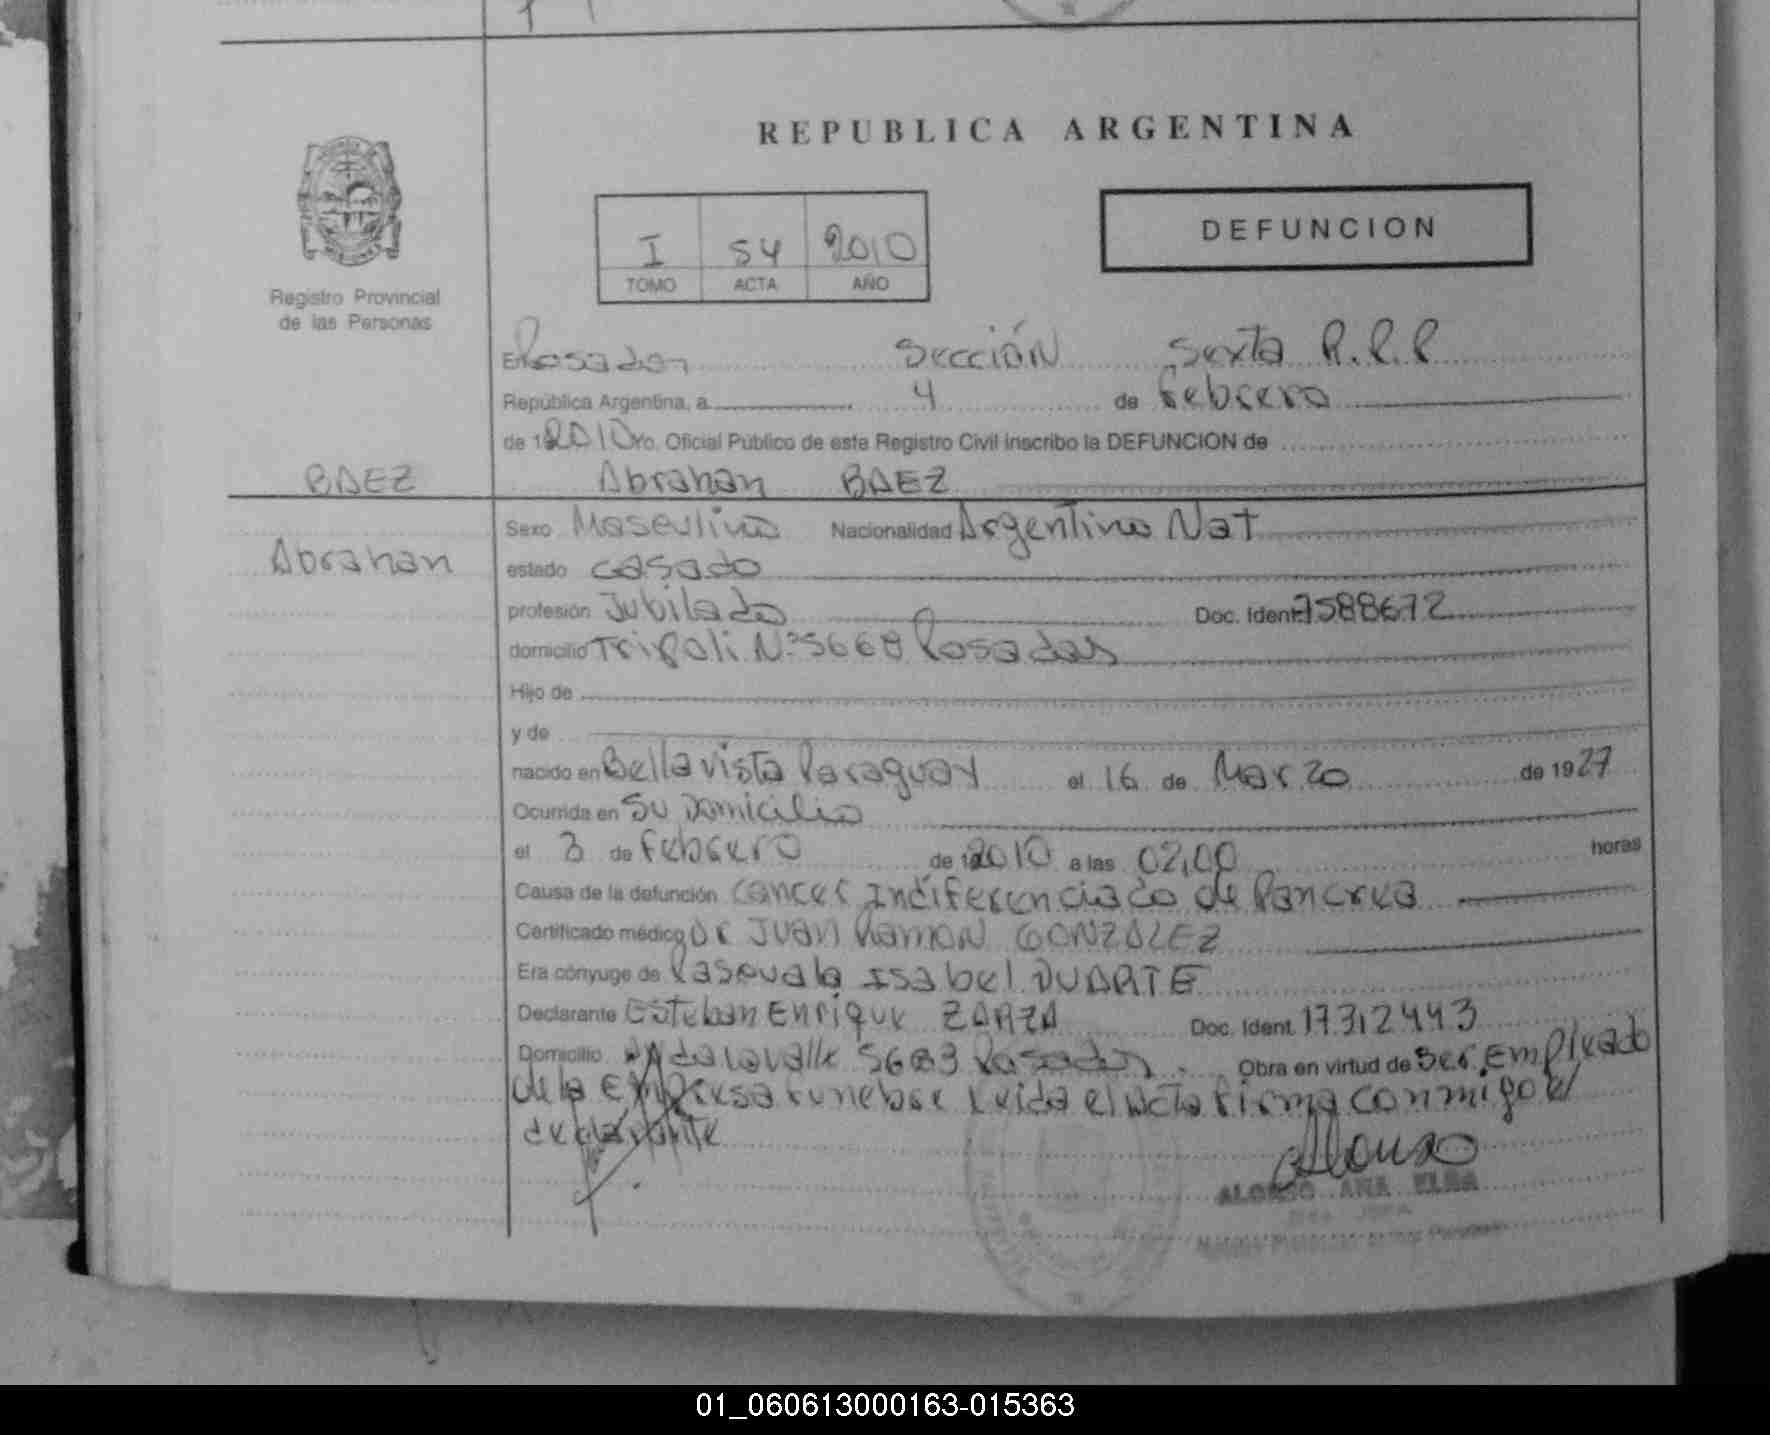 REPUBLICA ARGENTINA
I 54 2010
TOMO ACTA AÑO
DEFUNCION
Registro Provincial
de las Personas
En Posadas Sección Sexta R.P.P
República Argentina, a 4 de Febrero
de 1 2010 Yo. Oficial Público de este Registro Civil inscribo la DEFUNCION de
BAEZ Abrahan BAEZ
Sexo Masculino Nacionalidad Argentino Nat
Abrahan
estado casado
profesión Jubilado Doc. Ident. 7588672
domicilio Tripoli Nº 5668 Posadas
Hijo de
y de
nacido en Bella vista Paraguay el 16 de Marzo de 1927
Ocurrida en Su Domicilio
el 3 de Febrero de 1 2010 a las 02,00 horas
Causa de la defunción Cancer Indiferenciado de Pancrea
Certificado médico Dr Juan Ramon GONZALEZ
Era cónyuge de Pascuala Isabel DUARTE
Declarante Esteban Enrique ZARZA Doc. Ident. 17312443
Domicilio 5683 Posadas. Obra en virtud de Ser Empleado
de la Empresa Funebre Leida el Acta Firma conmigo el
declarante
Alonso
ALONSO ANA ELBA
01_060613000163-015363